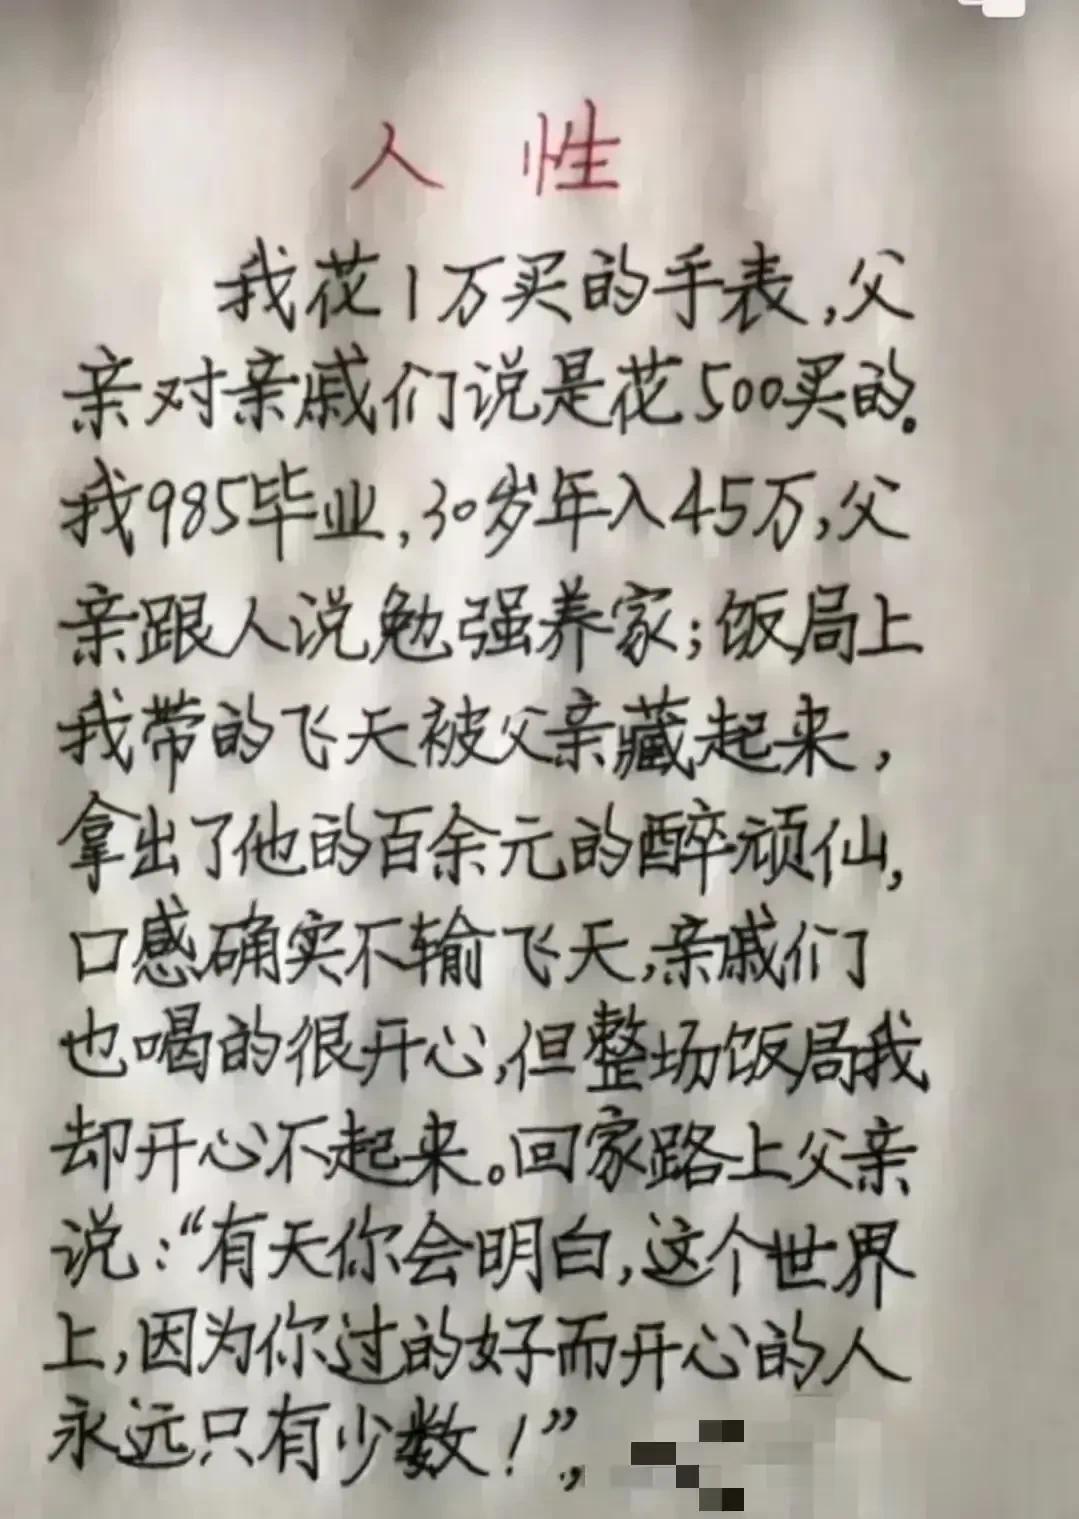 人性
我花1万买的手表,父
亲对亲戚们说是花500买的。
我985毕业,30岁年入45万,父
亲跟人说勉强养家;饭局上
我带的飞天被父亲藏起来,
拿出了他的百余元的醉顽仙,
口感确实不输飞天,亲戚们
也喝的很开心,但整场饭局我
却开心不起来。回家路上父亲
说:“有天你会明白,这个世界
上,因为你过的好而开心的人
永远只有少数!”